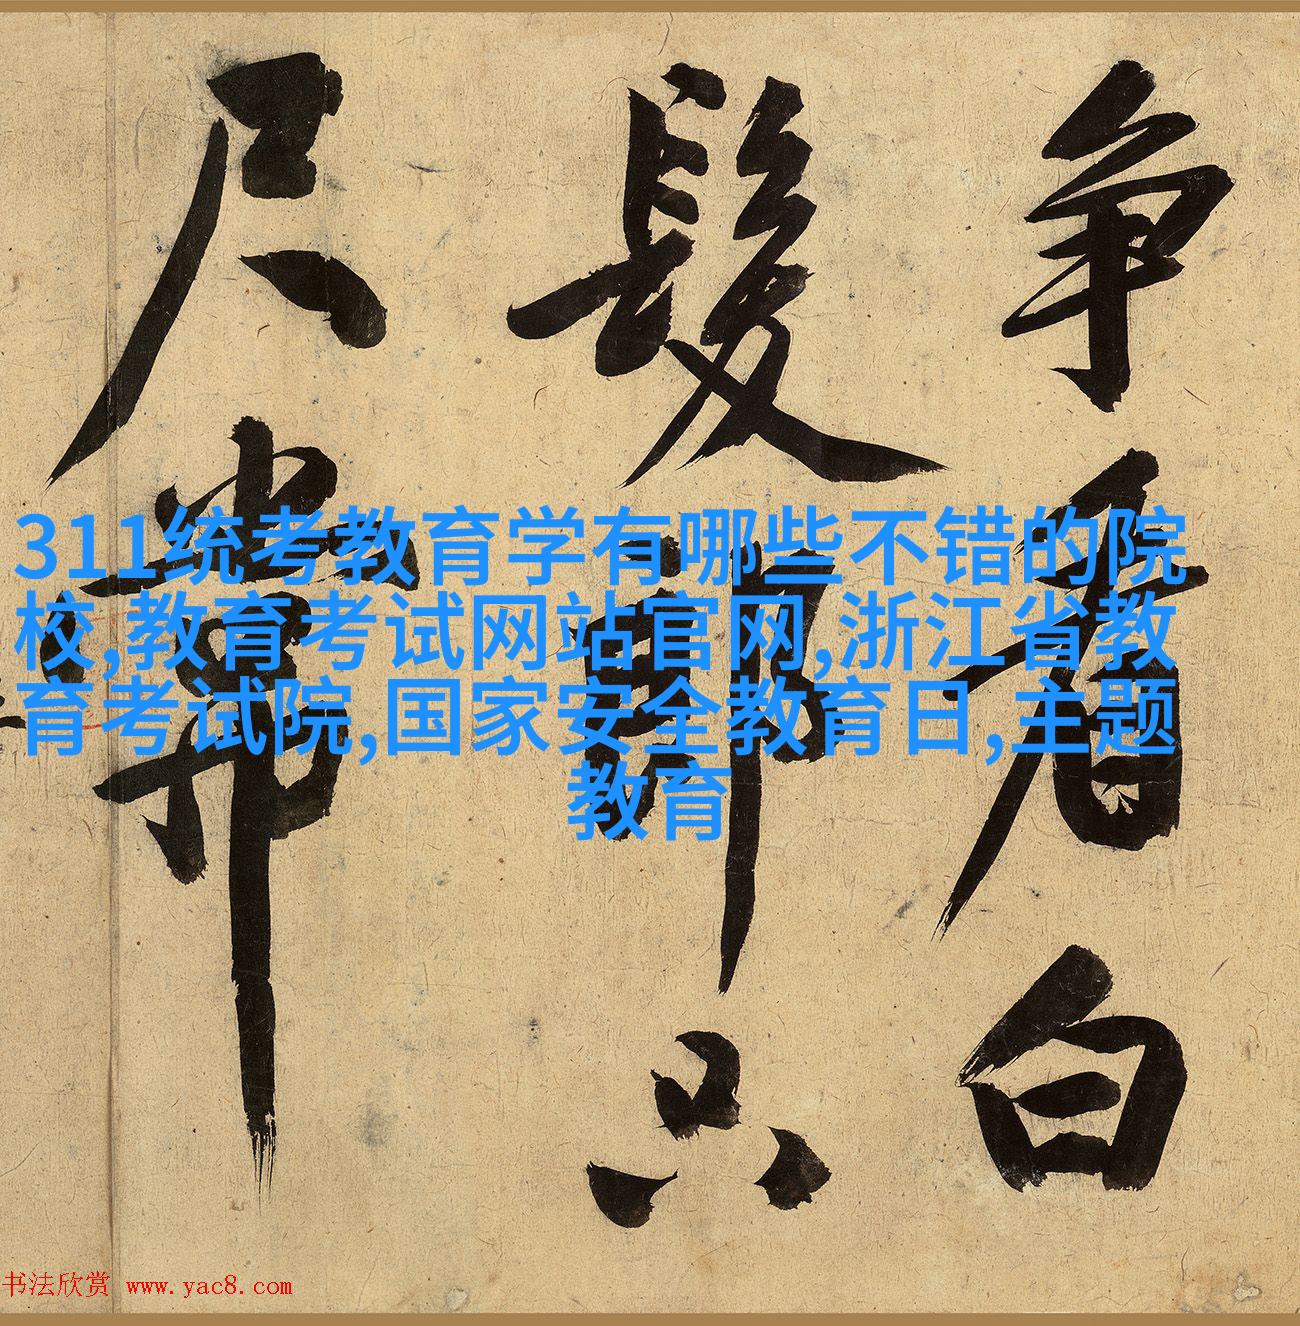 311统考教育学有哪些不错的院
校,教育考试网站官网,浙江省教
育考试院,国家安全教育日,主题
教育
争看白
髮郎只
尺
书法欣赏 www.yac8.com